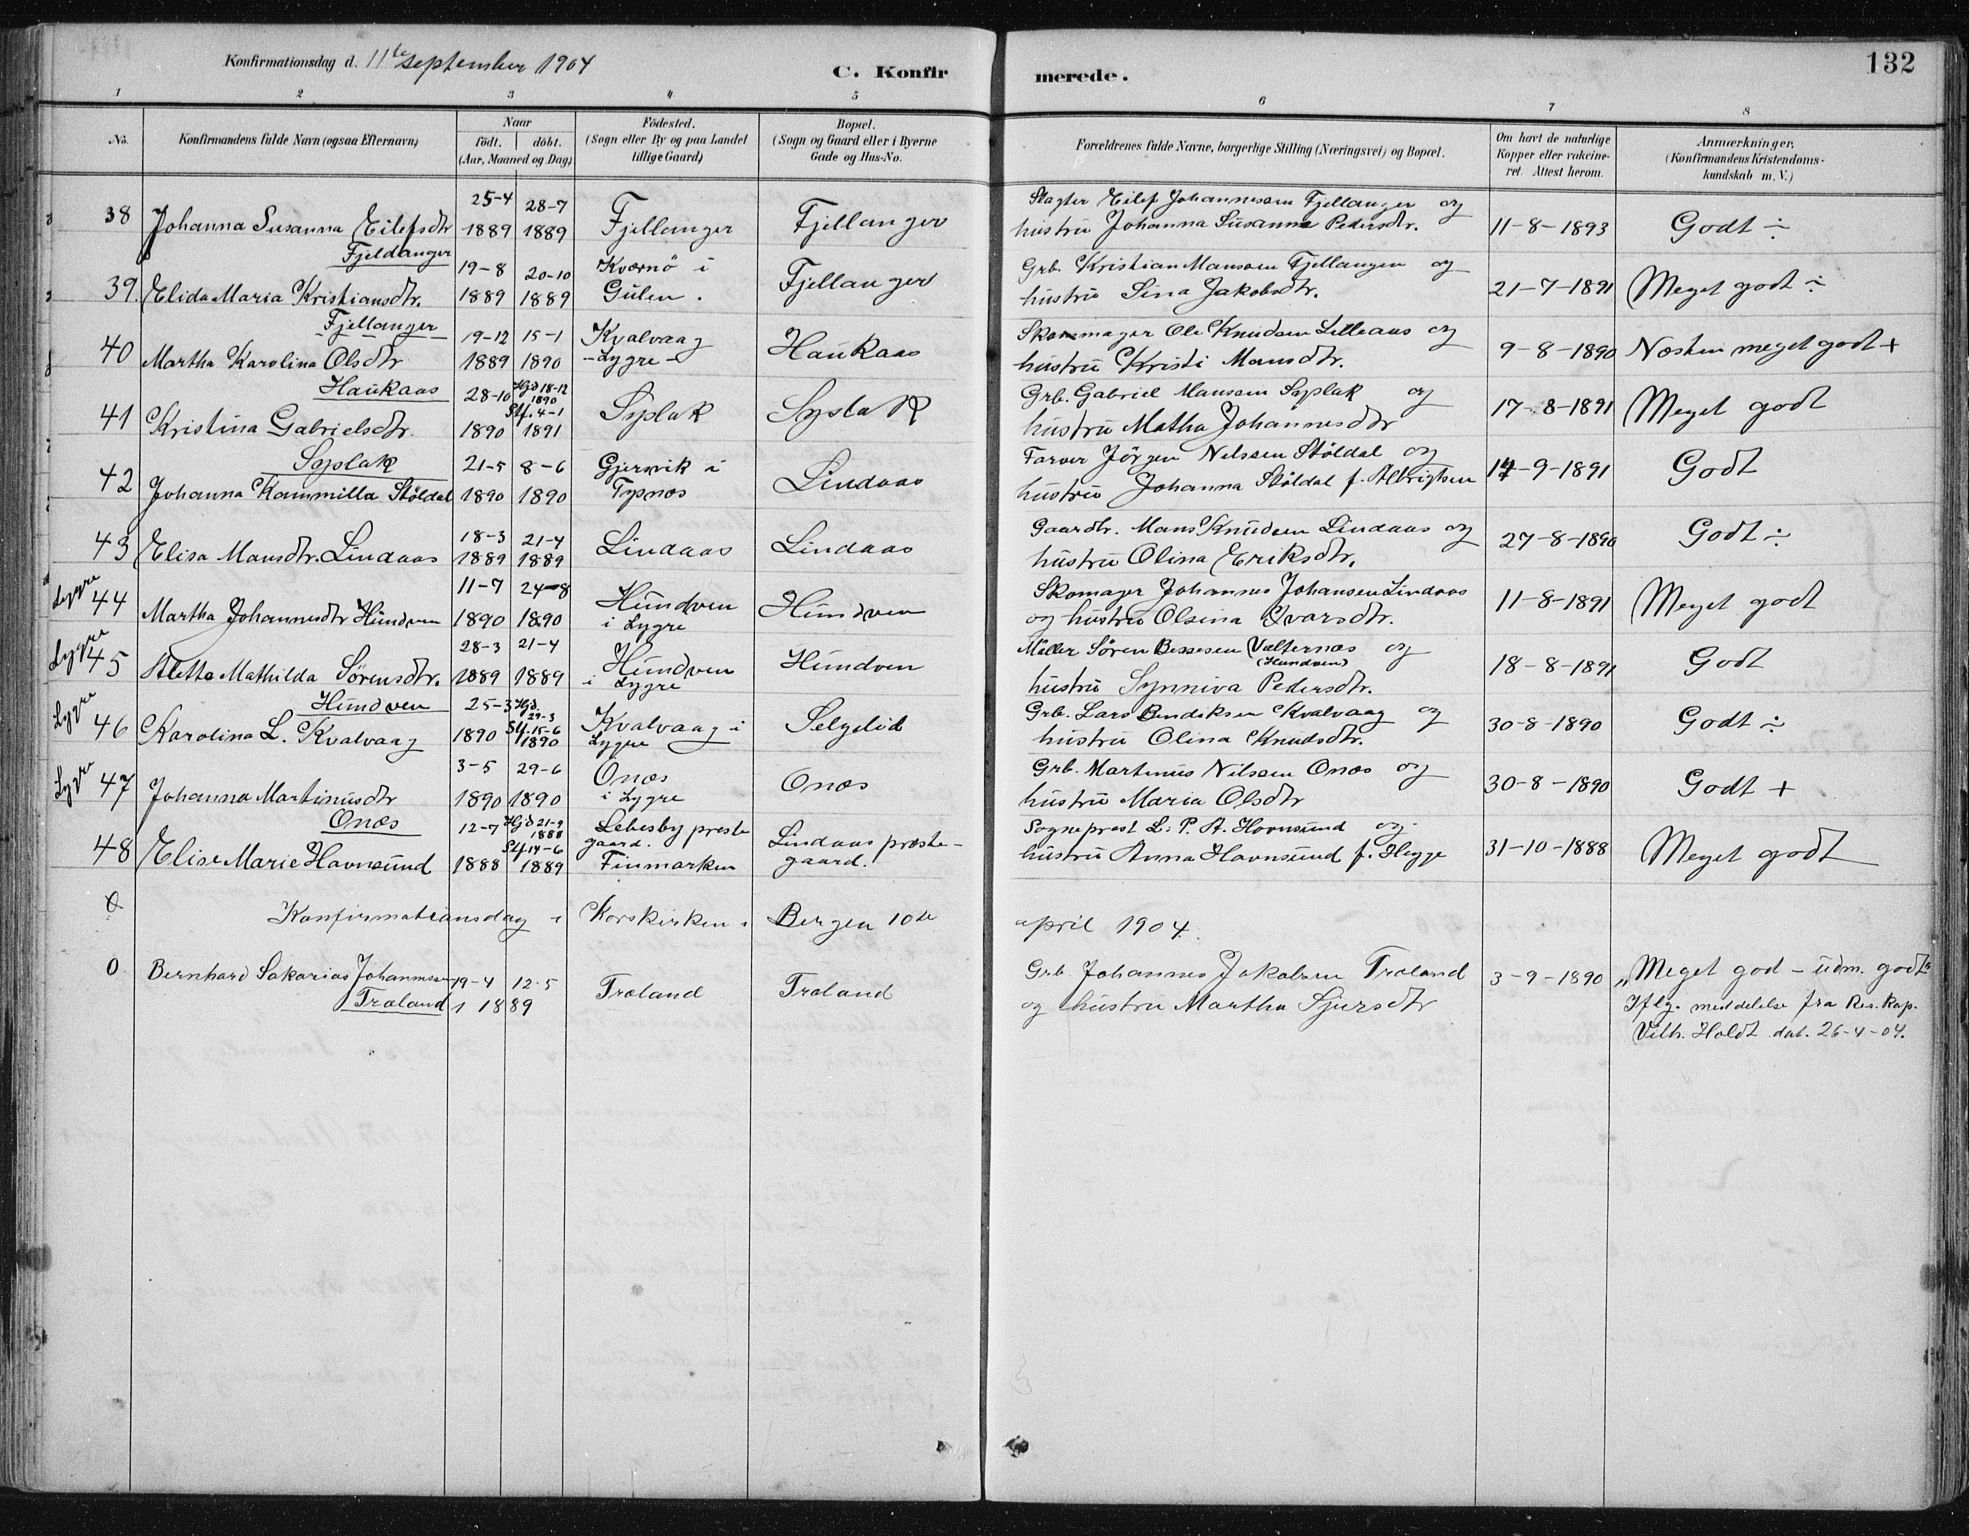 132
Konfirmationsdag d. 11te september 1904
C. Konfirmerede.
1 2 3 4 5 6 7 8
No. | Konfirmandens fulde Navn (ogsaa Efternavn) | Naar födt. döbt. (Aar, Maaned og Dag) | Födested. (Sogn eller By og paa Landet tillige Gaard) | Bopæl. (Sogn og Gaard eller i Byerne Gade og Hus-No. | Forældrenes fulde Navne, borgerlige Stilling (Næringsvei) og Bopæl. | Om havt de naturlige Kopper eller vakcineret. Attest herom. | Anmærkninger. (Konfirmandens Kristendomskundskab m. V.)
38 | Johanna Susanna Eilefsdtr Fjeldanger | 25-4 1889 | 28-7 1889 | Fjellanger | Fjellanger | Slagter Eilef Johannessen Fjellanger og hustru Johanna Susanna Pedersdtr. | 11-8-1893 | Godt ÷
39. | Elida Maria Kristiansdtr. Fjellanger | 19-8 1889 | 20-10 1889 | Kværnö i Gulen. | Fjellanger | Grb. Kristian Mansen Fjellanger og hustru Sina Jakobsdtr. | 21-7-1891 | Meget godt ÷
40 | Martha Karolina Olsdtr Haukaas | 19-12 1889 | 15-1 1890 | Kvalvaag -Lygre- | Haukaas | Skomager Ole Knudsen Lilleaas og hustru Kristi Mansdtr. | 9-8-1890 | Næsten meget godt +
41 | Kristina Gabrielsdtr. Syslak | 28-10 1890 | Hjd 18-12 1890 Stf. 4-1 1891 | Syslak | Syslak | Grb. Gabriel Mansen Syslak og hustru Matha Johannesdtr | 17-8-1891 | Meget godt
42 | Johanna Kammilla Stöldal | 21-5 1890 | 8-6 1890 | Gjersvik i Tysnæs | Lindaas | Farver Jörgen Nilssen Stöldal og hustru Johanna Stöldal f. Albrigtsen | 14-9-1891 | Godt
43 | Elisa Mansdtr. Lindaas | 18-3 1889 | 21-4 1889 | Lindaas | Lindaas | Gaardbr. Mans Knudsen Lindaas og hustru Olina Eriksdtr. | 27-8-1890 | Godt ÷
Lygre 44 | Martha Johannesdtr Hundven | 11-7 1890 | 24-8 1890 | Hundven i Lygre | Hundven | Skomager Johannes Johansen Lindaas og hustru Olsina Ivarsdtr. | 11-8-1891 | Meget godt
Lygre 45 | Aletta Mathilda Sörensdtr. Hundven | 28-3 1889 | 21-4 1889 | Hundven i Lygre | Hundven | Möller Sören Bessesen Valternæs (Hundven) og hustru Synniva Pedersdtr. | 18-8-1891 | Godt
Lygre 46 | Karolina L. Kvalvaag | 25-3 1890 | Hjd. 29-3 Stf. 15-6 1890 | Kvalvaag i Lygre | Selgelid | Grb. Lars Bendiksen Kvalvaag og hustru Olina Knudsdtr. | 30-8-1890 | Godt ÷
Lygre 47 | Johanna Martinusdtr Onæs | 3-5 1890 | 29-6 1890 | Onæs i Lygre | Onæs | Grb. Martinus Nilssen Onæs og hustru Maria Olsdtr | 30-8-1890 | Godt +
48 | Elise Marie Hovnsund | 12-7 1888 | Hjd 21-9 1888 Stf. 14-6 1889 | Lebesby prestegaard. Finmarken | Lindaas prestegaard. | Sogneprest L. P. A. Hovnsund og hustru Anna Hovnsund f. Hegge | 31-10-1888 | Meget godt
Konfirmationsdag i Korskirken i Bergen 10de april 1904.
0 | Bernhard Sakarias Johannessen Træland | 19-4 1889 | 12-5 | Træland | Træland | Grb. Johannes Jakobsen Træland og hustru Martha Sjursdtr | 3-9-1890 | „Meget god - udm. godt" Iflg. meddelelse fra Res. Kap. Vilh. Holdt dat. 26-4-04.